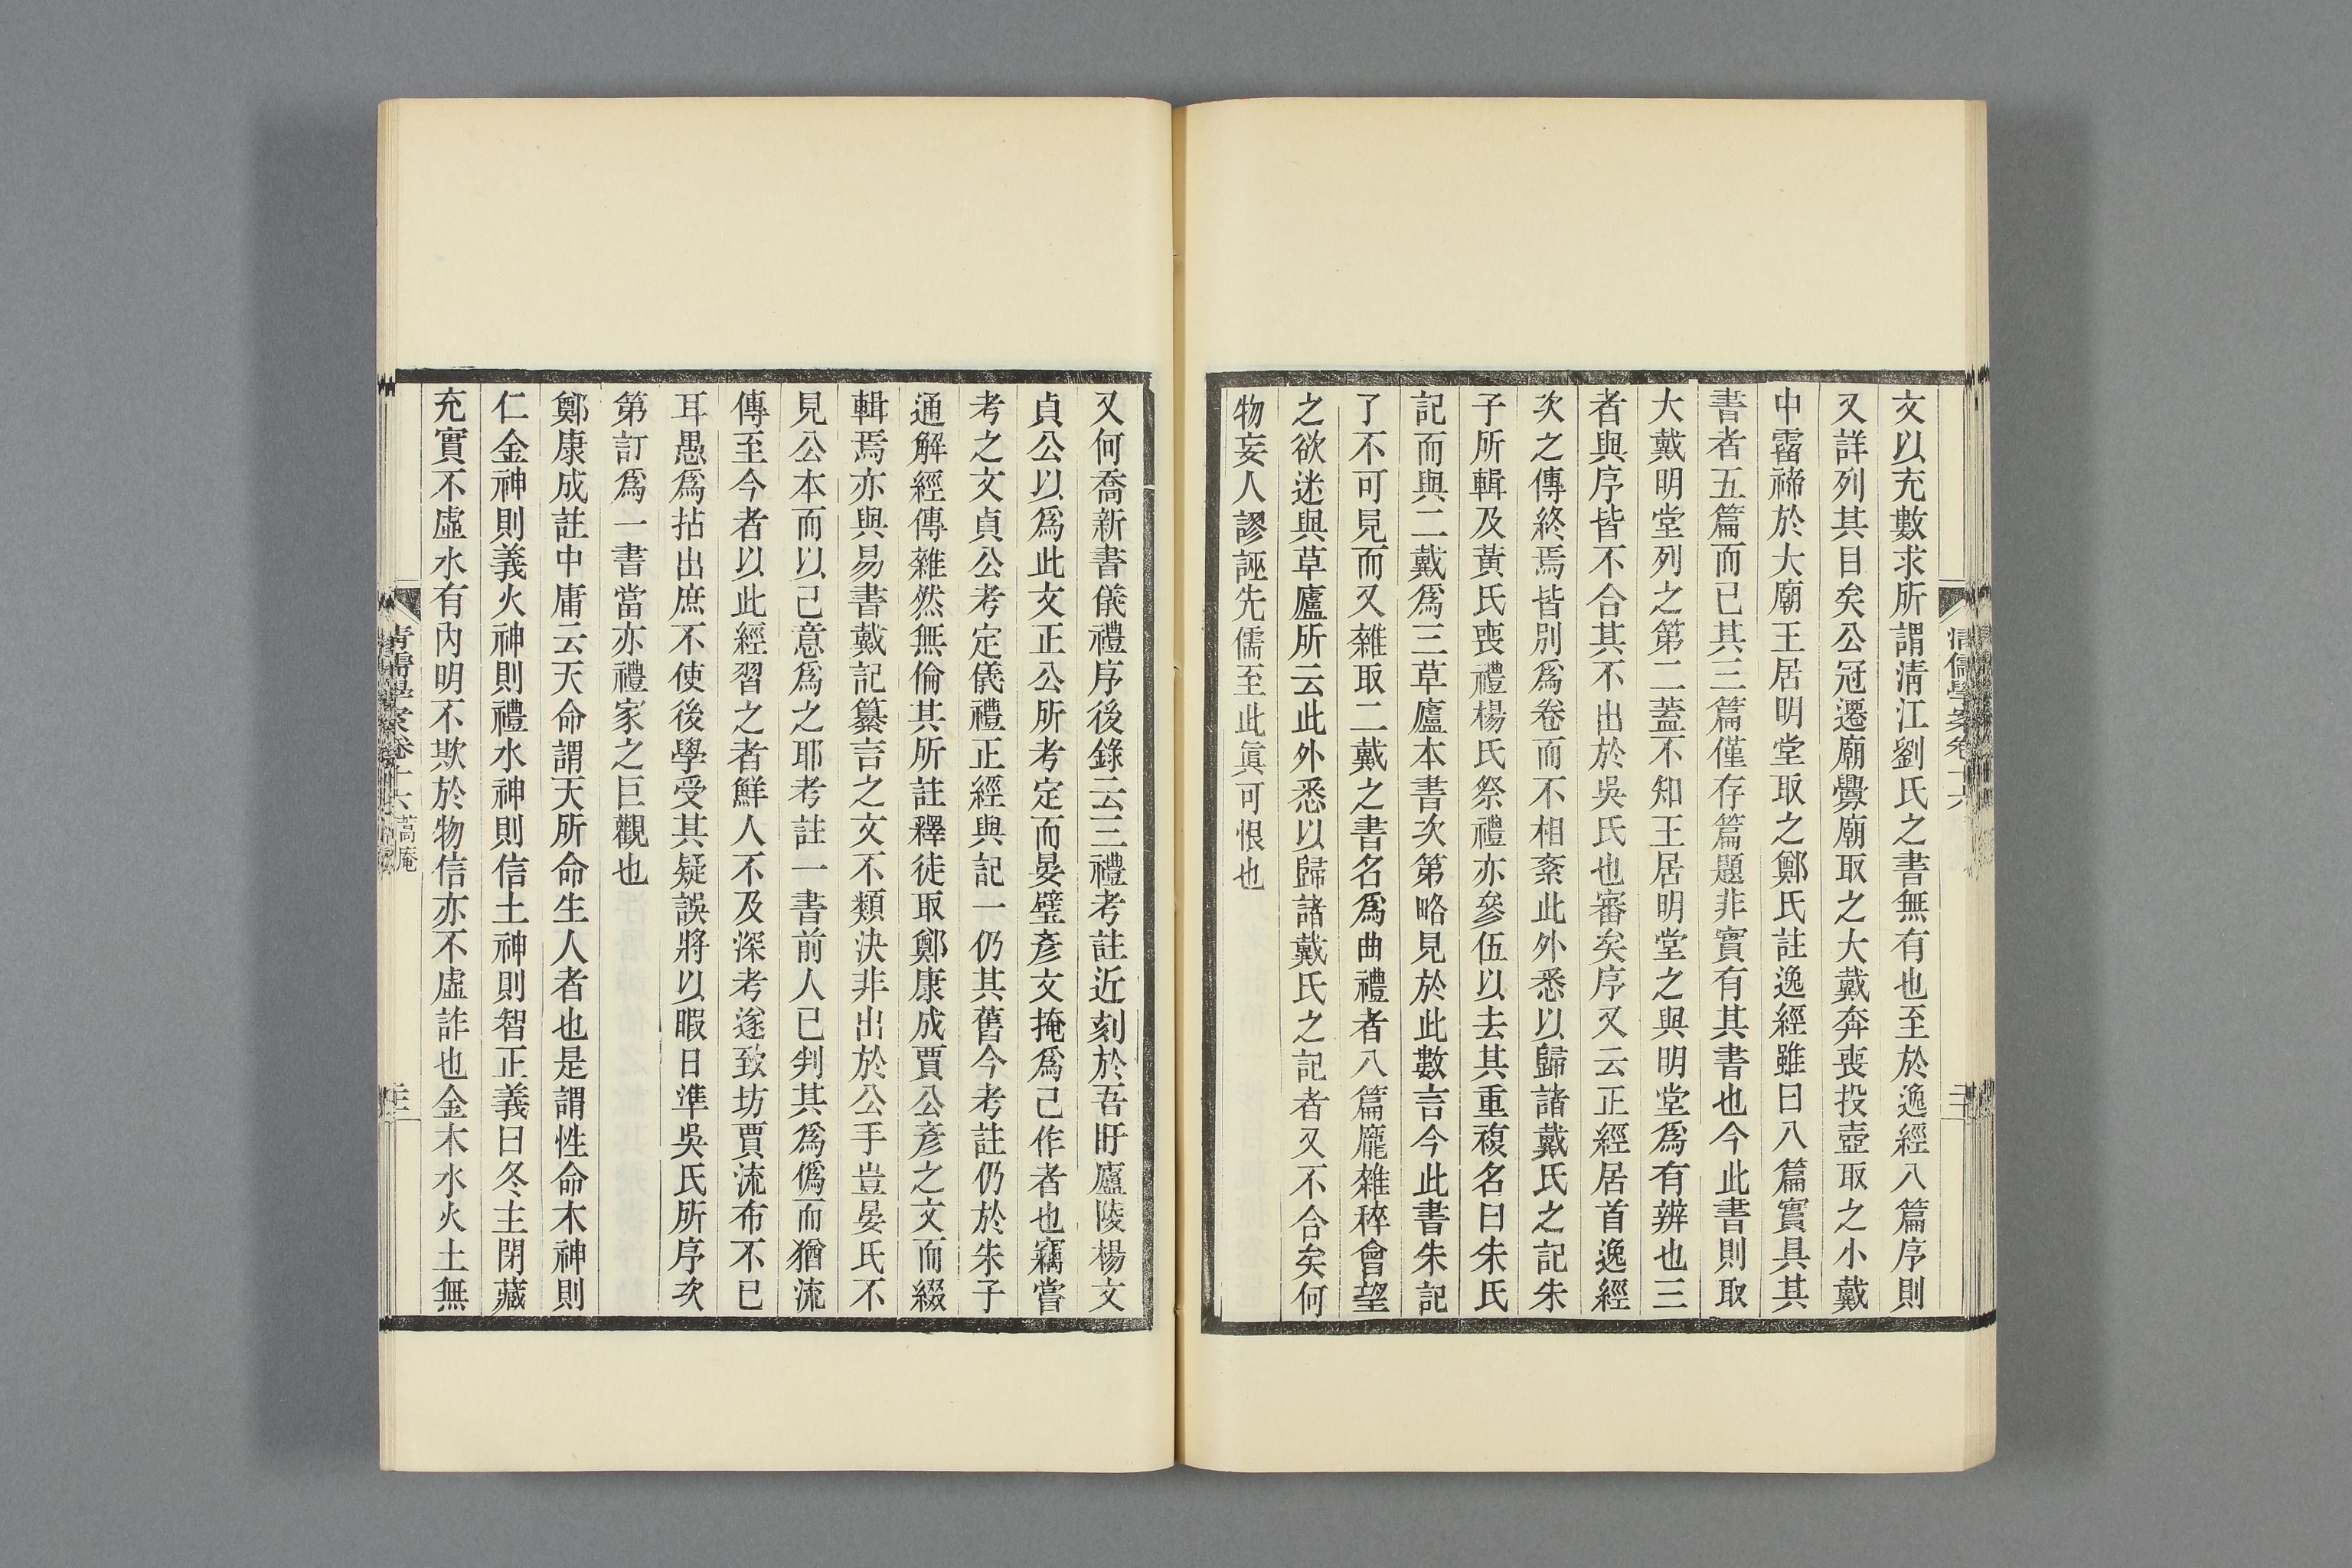 文以充數求所謂清江劉氏之書無有也至於逸經八篇序則
又詳列其目矣公冠遷廟釁廟取之大戴奔喪投壺取之小戴
中霤禘於大廟王居明堂取之鄭氏註逸經雖曰八篇實具其
書者五篇而已其三篇僅存篇題非實有其書也今此書則取
大戴明堂列之第二蓋不知王居明堂之與明堂爲有辨也三
者與序皆不合其不出於吳氏也審矣序又云正經居首逸經
次之傳終焉皆別爲卷而不相紊此外悉以歸諸戴氏之記朱
子所輯及黃氏喪禮楊氏祭禮亦參伍以去其重複名曰朱氏
記而與二戴爲三草廬本書次第略見於此數言今此書朱記
了不可見而又雜取二戴之書名爲曲禮者八篇龐雜稡會望
之欲迷與草廬所云此外悉以歸諸戴氏之記者又不合矣何
物妄人謬誣先儒至此眞可恨也
清儒學案卷十六
三
又何喬新書儀禮序後錄云三禮考註近刻於吾盱廬陵楊文
貞公以爲此文正公所考定而晏璧彥文掩爲己作者也竊嘗
考之文貞公考定儀禮正經與記一仍其舊今考註仍於朱子
通解經傳雜然無倫其所註釋徒取鄭康成賈公彥之文而綴
輯焉亦與易書戴記纂言之文不類決非出於公手豈晏氏不
見公本而以己意爲之耶考註一書前人已判其爲僞而猶流
傳至今者以此經習之者鮮人不及深考遂致坊賈流布不已
耳愚爲拈出庶不使後學受其疑誤將以暇日準吳氏所序次
第訂爲一書當亦禮家之巨觀也
鄭康成註中庸云天命謂天所命生人者也是謂性命木神則
仁金神則義火神則禮水神則信土神則智正義曰冬主閉藏
充實不虛水有內明不欺於物信亦不虛詐也金木水火土無
清儒學案卷十六 蒿庵